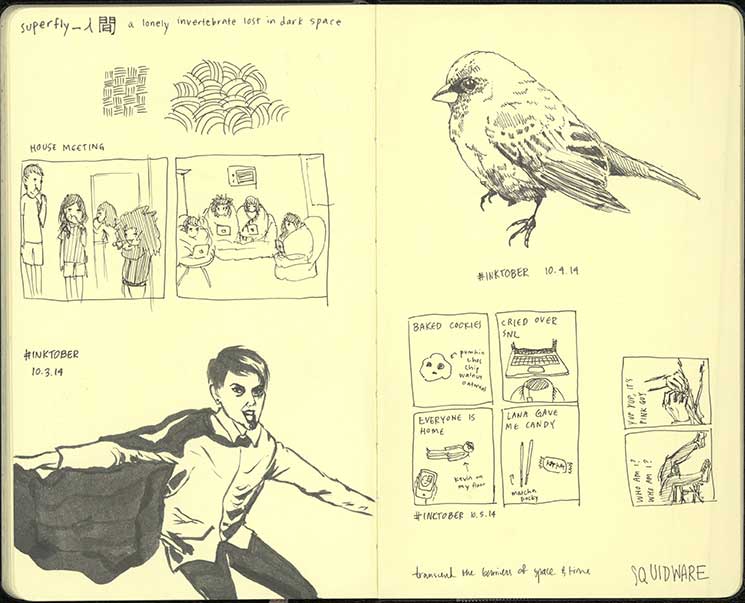 superfly_人間 a lonely invertebrate lost in dark space
HOUSE MEETING
#INKTOBER
10.3.14
#INKTOBER 10.4.14
BAKED COOKIES
pumpkin
choc
chip
walnut
oatmeal
CRIED OVER
SNL
EVERYONE IS
HOME
kevin on
my floor
LANA GAVE
ME CANDY
matcha
pocky
#INKTOBER 10.5.14
YUP YUP, IT'S
PINK GUY
WHO AM I?
WHO AM I?
transcend the barriers of space & time
SQUIDWARE